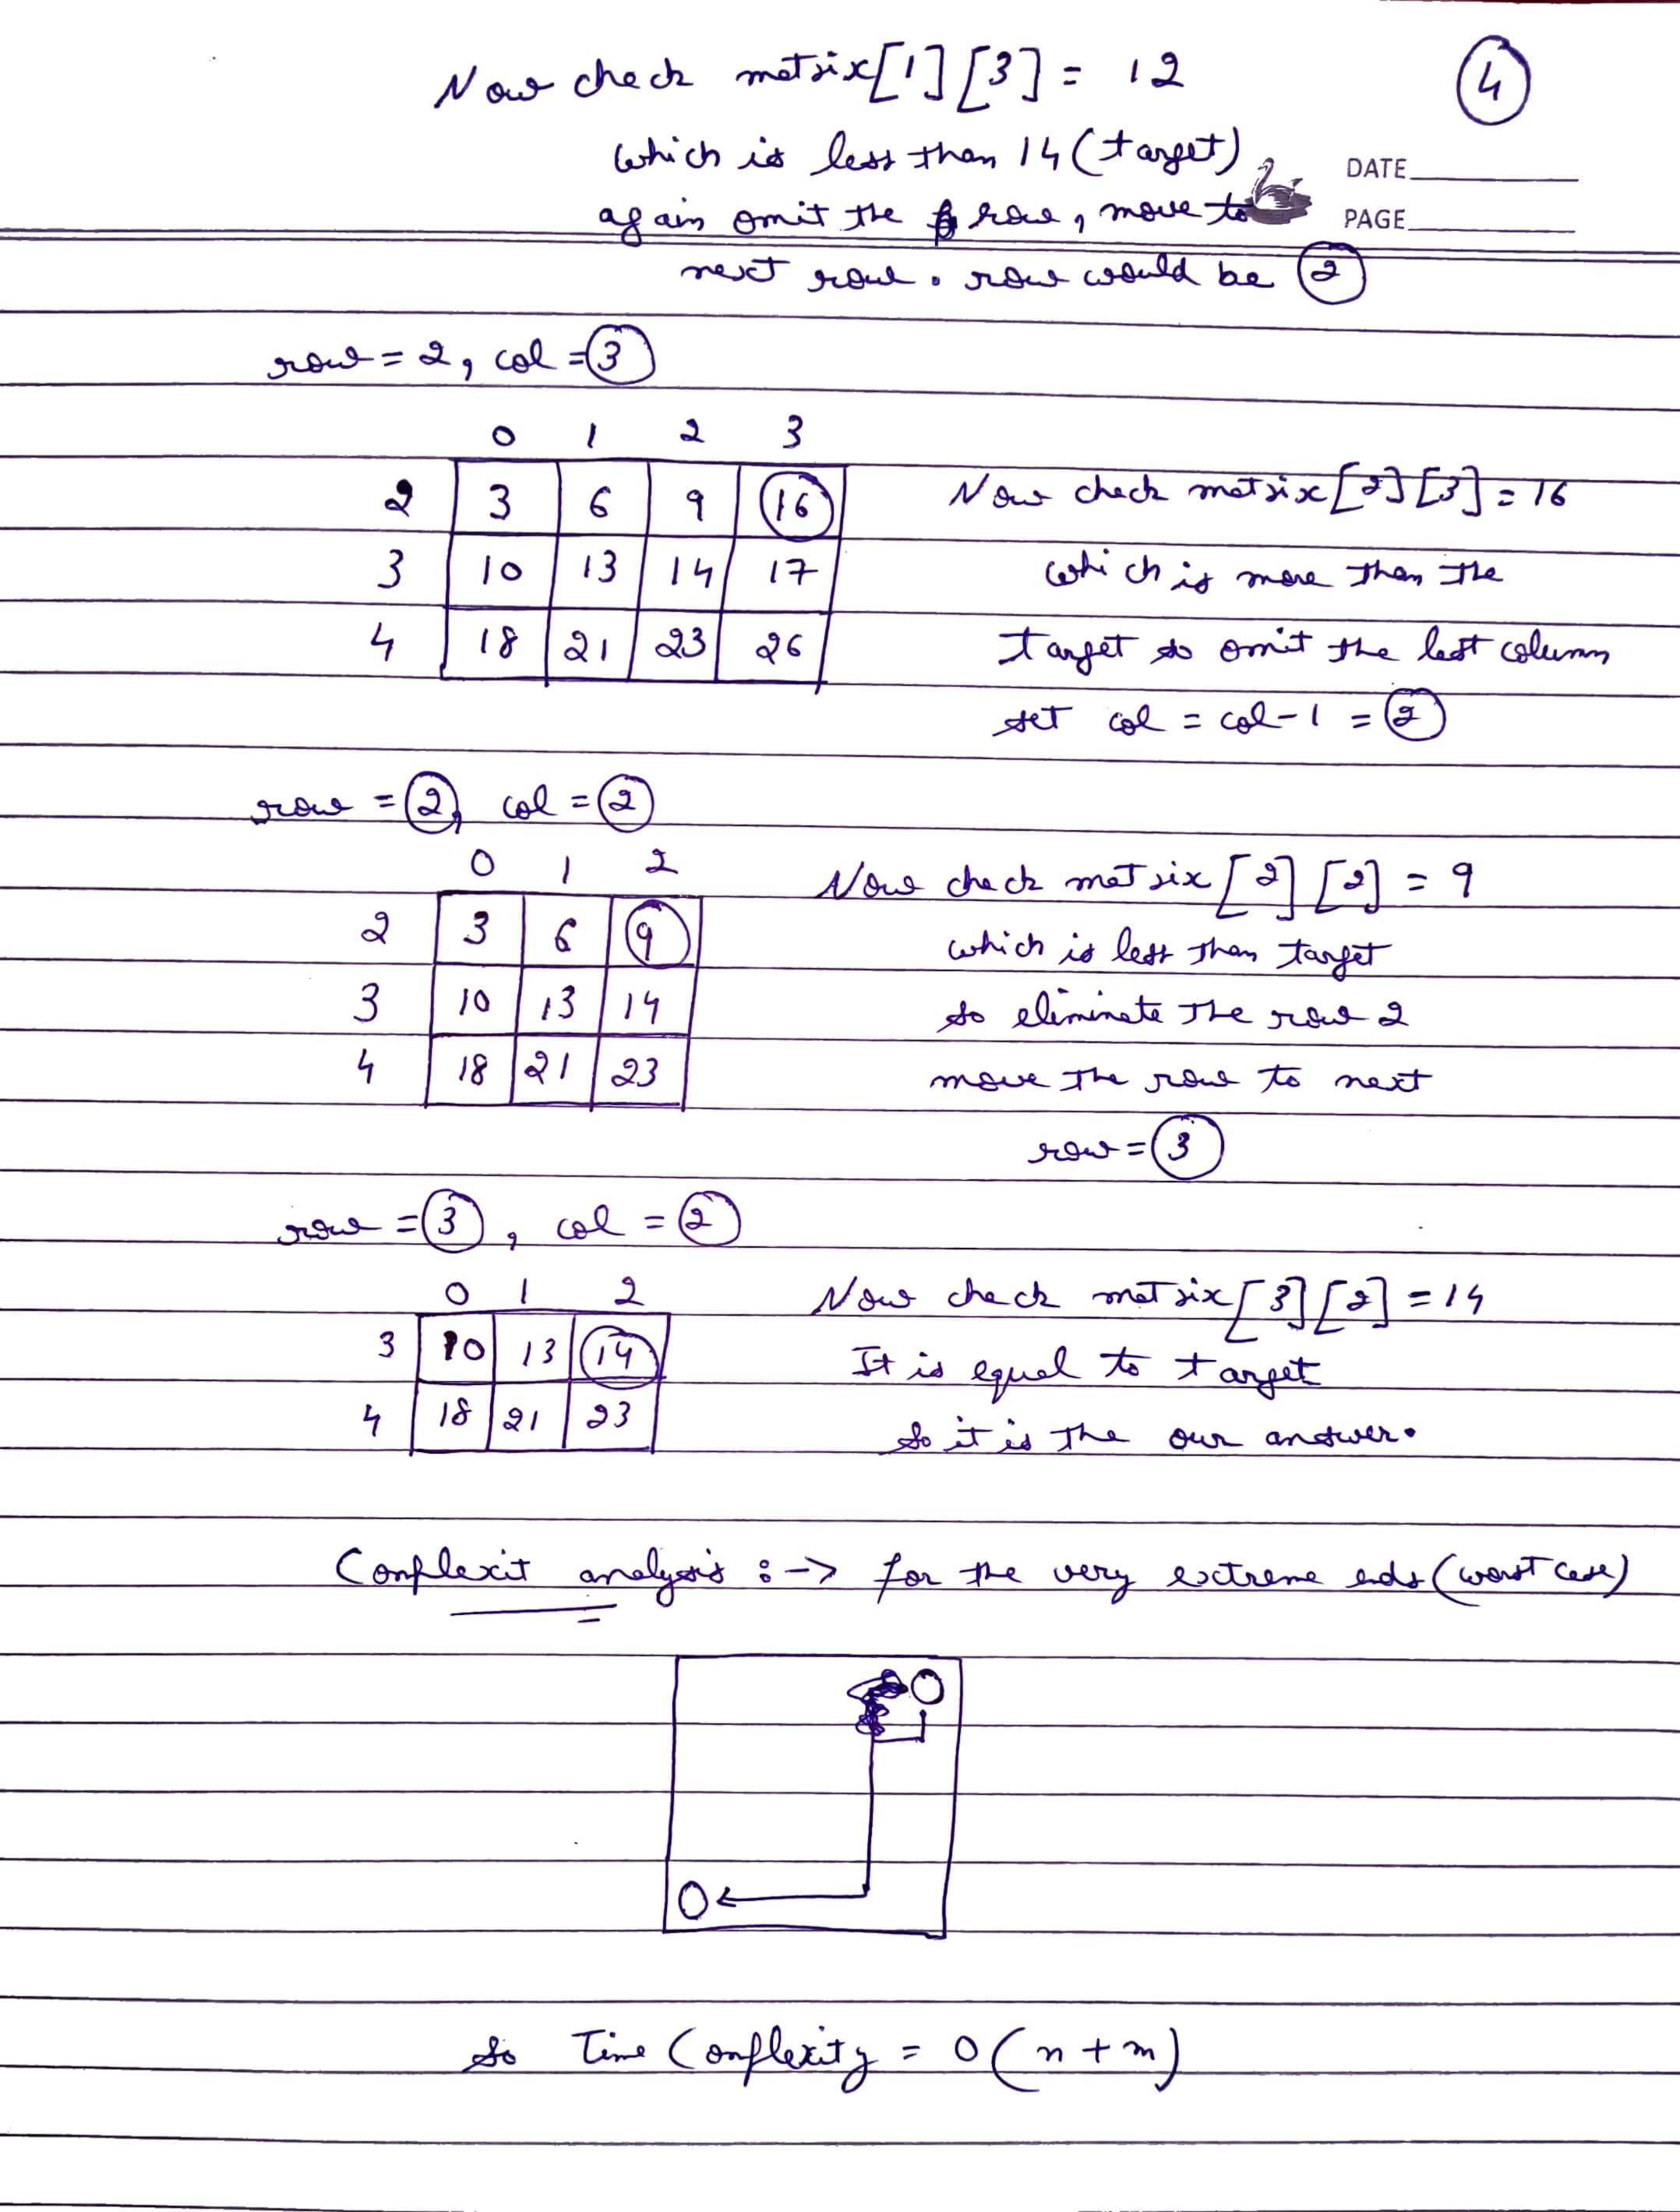 Now check matrix[1][3] = 12
4
which is less than 14 (target)
DATE
again omit the row, move to
PAGE
next row. row would be 2
row = 2, col = 3
0 1 2 3
2 3 6 9 16
3 10 13 14 17
4 18 21 23 26
Now check matrix[2][3] = 16
which is more than the
target so omit the last column
set col = col-1 = 2
row = 2, col = 2
0 1 2
2 3 6 9
3 10 13 14
4 18 21 23
Now check matrix[2][2] = 9
which is less than target
so eliminate the row 2
move the row to next
row = 3
row = 3, col = 2
0 1 2
3 10 13 14
4 18 21 23
Now check matrix[3][2] = 14
It is equal to target
So it is the our answer.
Complexit analysis :-> for the very extreme ends (worst case)
So Time Complexity = O(n+m)